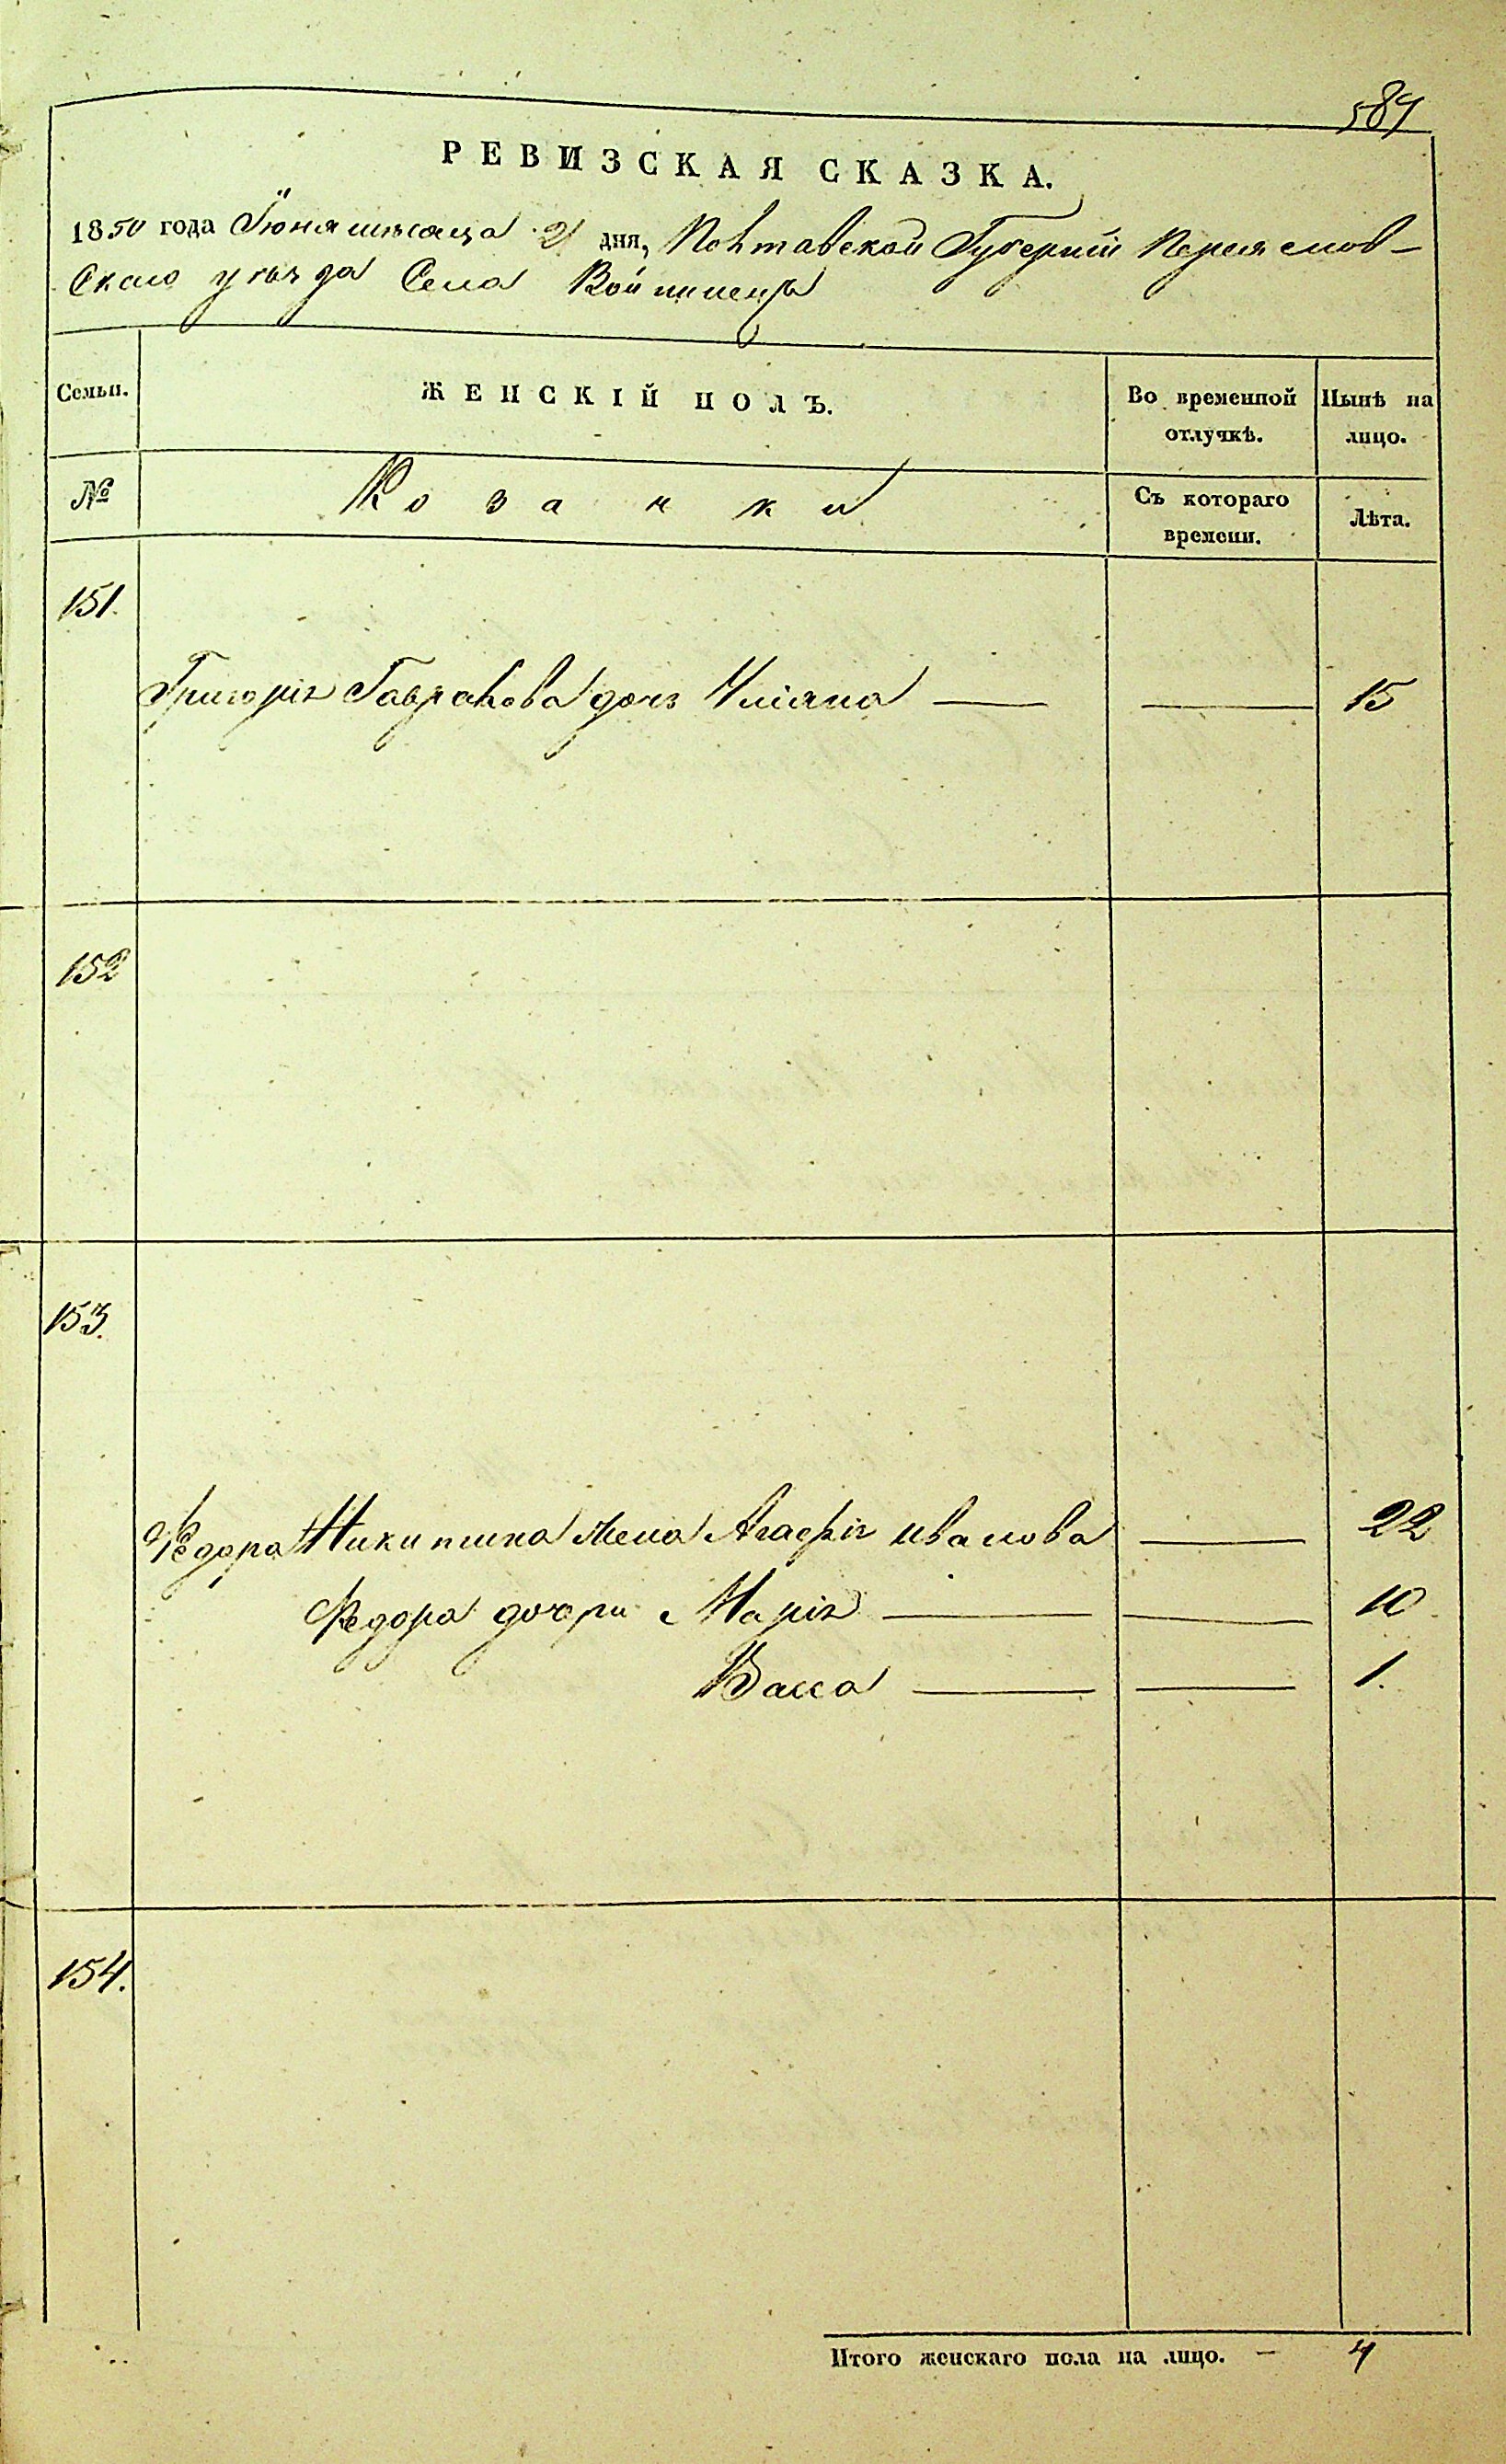 589
РЕВИЗСКАЯ СКАЗКА.
1850 года Іюня мѣсяца 2 дня, Полтавской Губерніи Переяслов-
скаго уѣзда Села Войтовецъ
Семьи.
ЖЕНСКІЙ ПОЛЪ.
Во временной отлучкѣ.
Нынѣ на лицо.
№
Козачки
Съ котораго времени.
Лѣта.
151.
Григорія Гаврилова дочь Уліяна — — 15
152
153.
Федора Никитина жена Агафія Иванова — 22
Федора дочери Марія — — 10
Васса — — 1.
154.
Итого женскаго пола на лицо. — 4